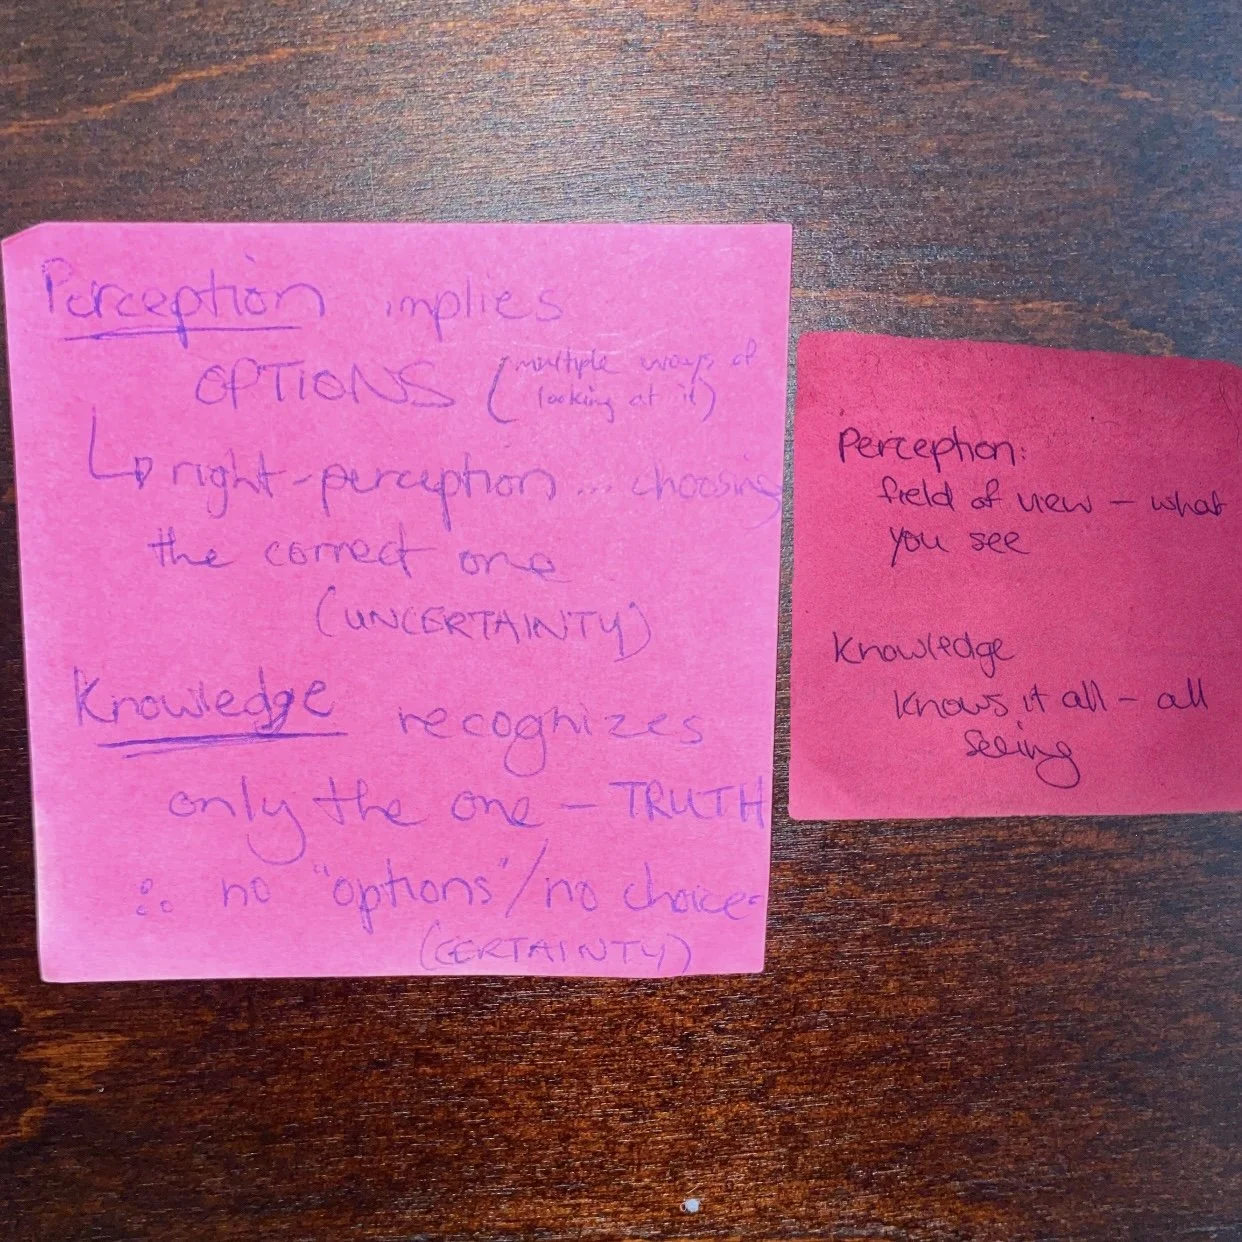 Perception implies
OPTIONS (multiple ways of
looking at it)
↳ right-perception... choosing
the correct one
(UNCERTAINTY)
Knowledge recognizes
only the one - TRUTH
∴ no "options"/no choice
(CERTAINTY)
Perception:
field of view - what
you see
Knowledge
knows it all - all
seeing